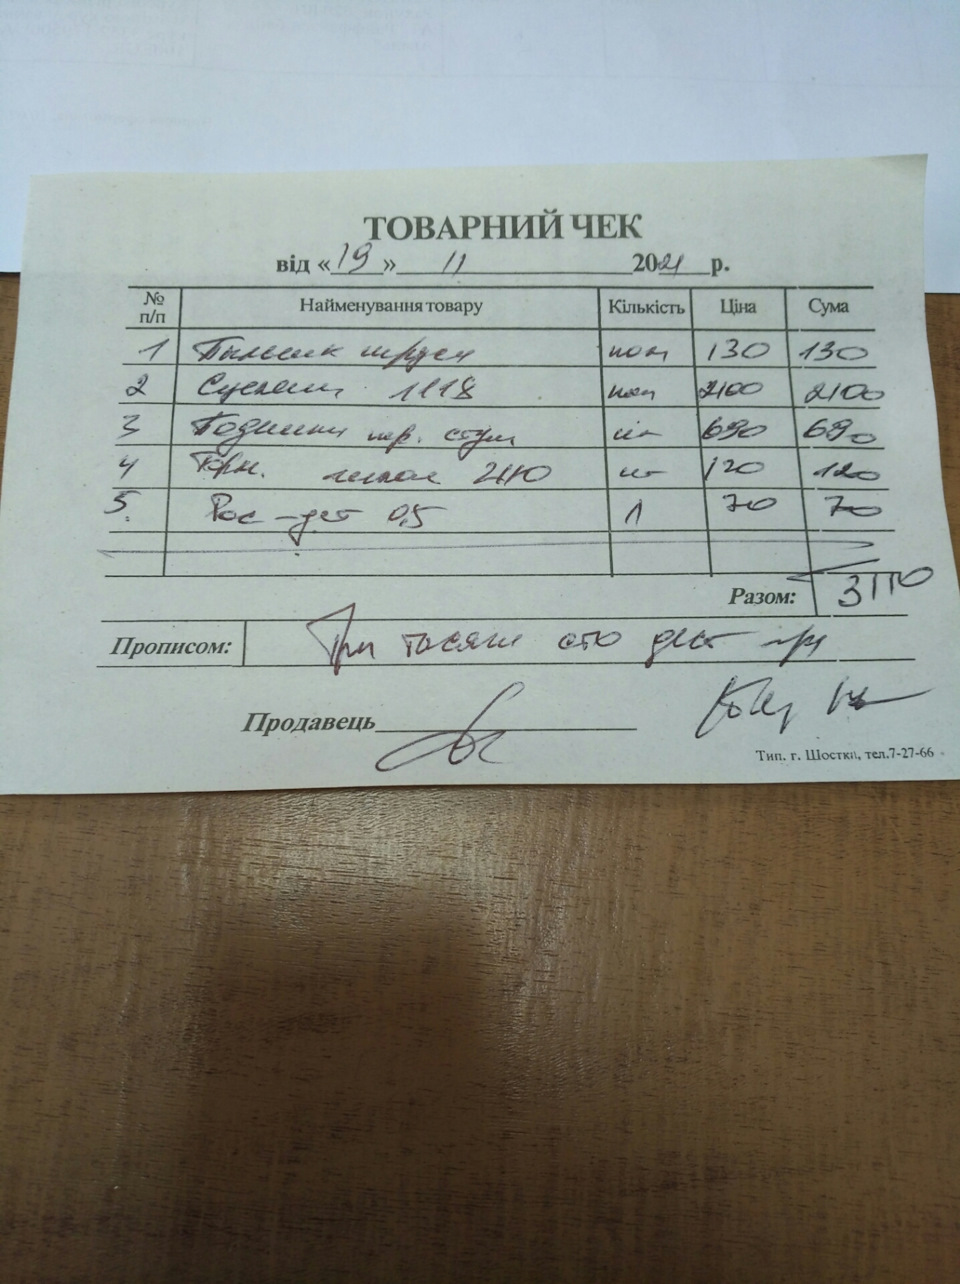 ТОВАРНИЙ ЧЕК
від «19» 11 2021 р.
№ п/п Найменування товару Кількість Ціна Сума
1 Пыльник шруса ком 130 130
2 Сцепление 1118 ком 2100 2100
3 Подшипн. пер. ступ шт 690 690
4 Торм. 2110 шт 120 120
5. Рос-дот 0,5 1 70 70
Разом: 3110
Прописом: Три тысячи сто дест грн
Продавець
Тип. г. Шостки, тел.7-27-66